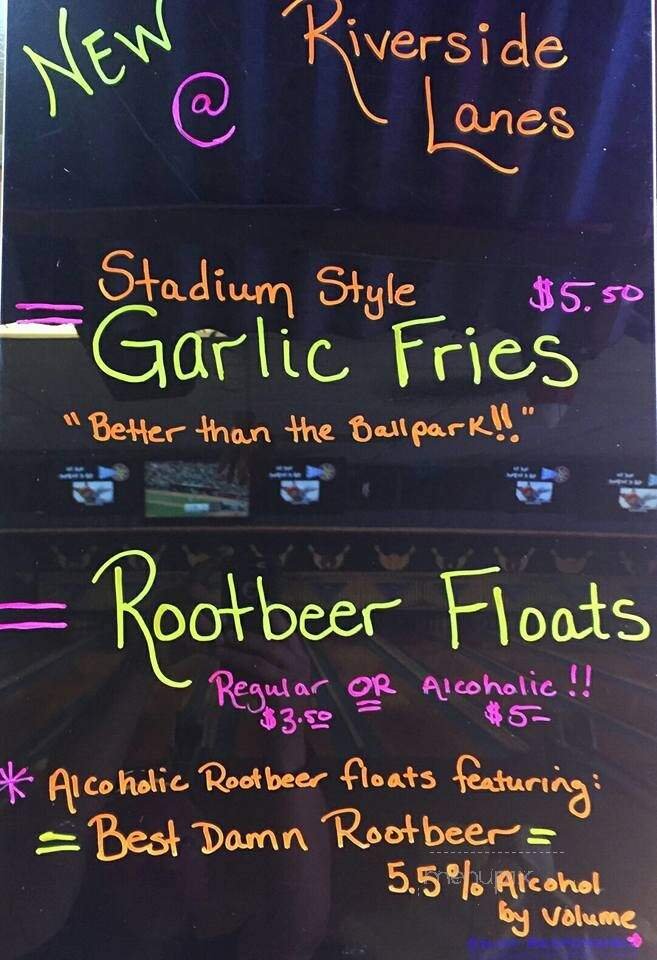 NEW @ Riverside
Lanes
= Stadium Style $5.50
Garlic Fries
"Better than the Ballpark!!"
= Rootbeer Floats
Regular OR Alcoholic!!
$3.50 $5-
* Alcoholic Rootbeer floats featuring:
= Best Damn Rootbeer =
menupix
5.5% Alcohol
by volume